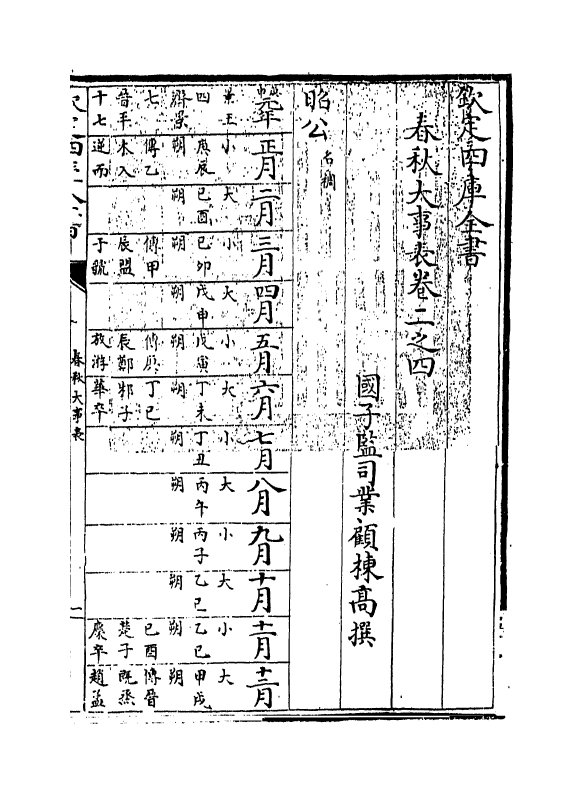 欽定四庫全書
春秋大事表卷二之四
國子監司業顧棟高撰
昭公 名裯
元年
景王
四
齊景
七
晉平
十七
正月
小
庚辰
朔
傳乙
未入
逆而
二月
大
己酉
朔
三月
小
己卯
朔
傳甲
辰盟
于虢
四月
大
戊申
朔
五月
小
戊寅
朔
傳庚
辰鄭
放游
六月
大
丁未
朔
丁巳
邾子
華卒
七月
小
丁丑
朔
八月
大
丙午
朔
九月
小
丙子
朔
十月
大
乙巳
朔
十一月
小
乙巳
朔
己酉
楚子
麇卒
十二月
大
甲戌
朔
傳晉
既烝
趙孟
春秋大事表
一